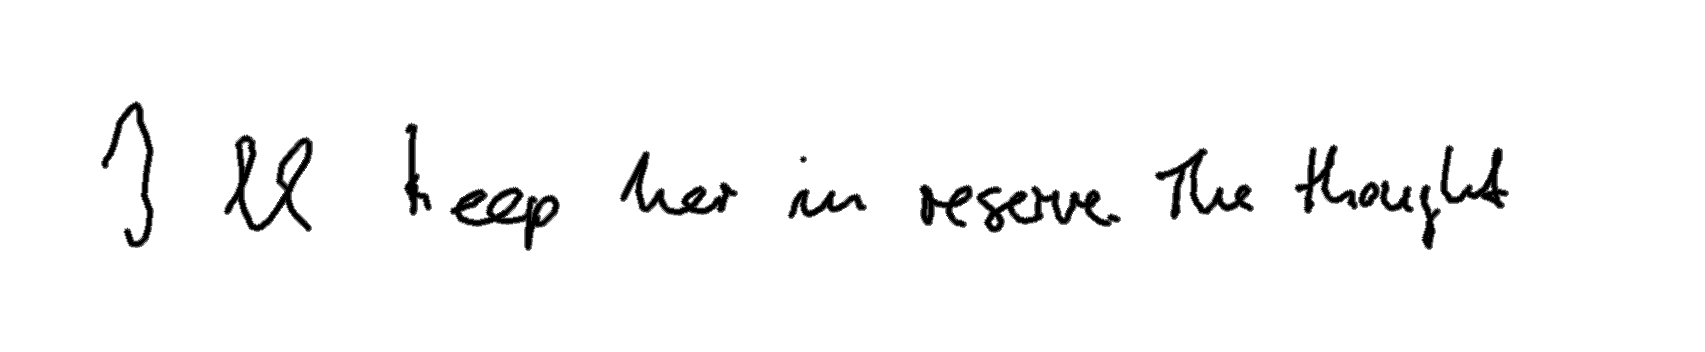 I ll keep her in reserve. The thought